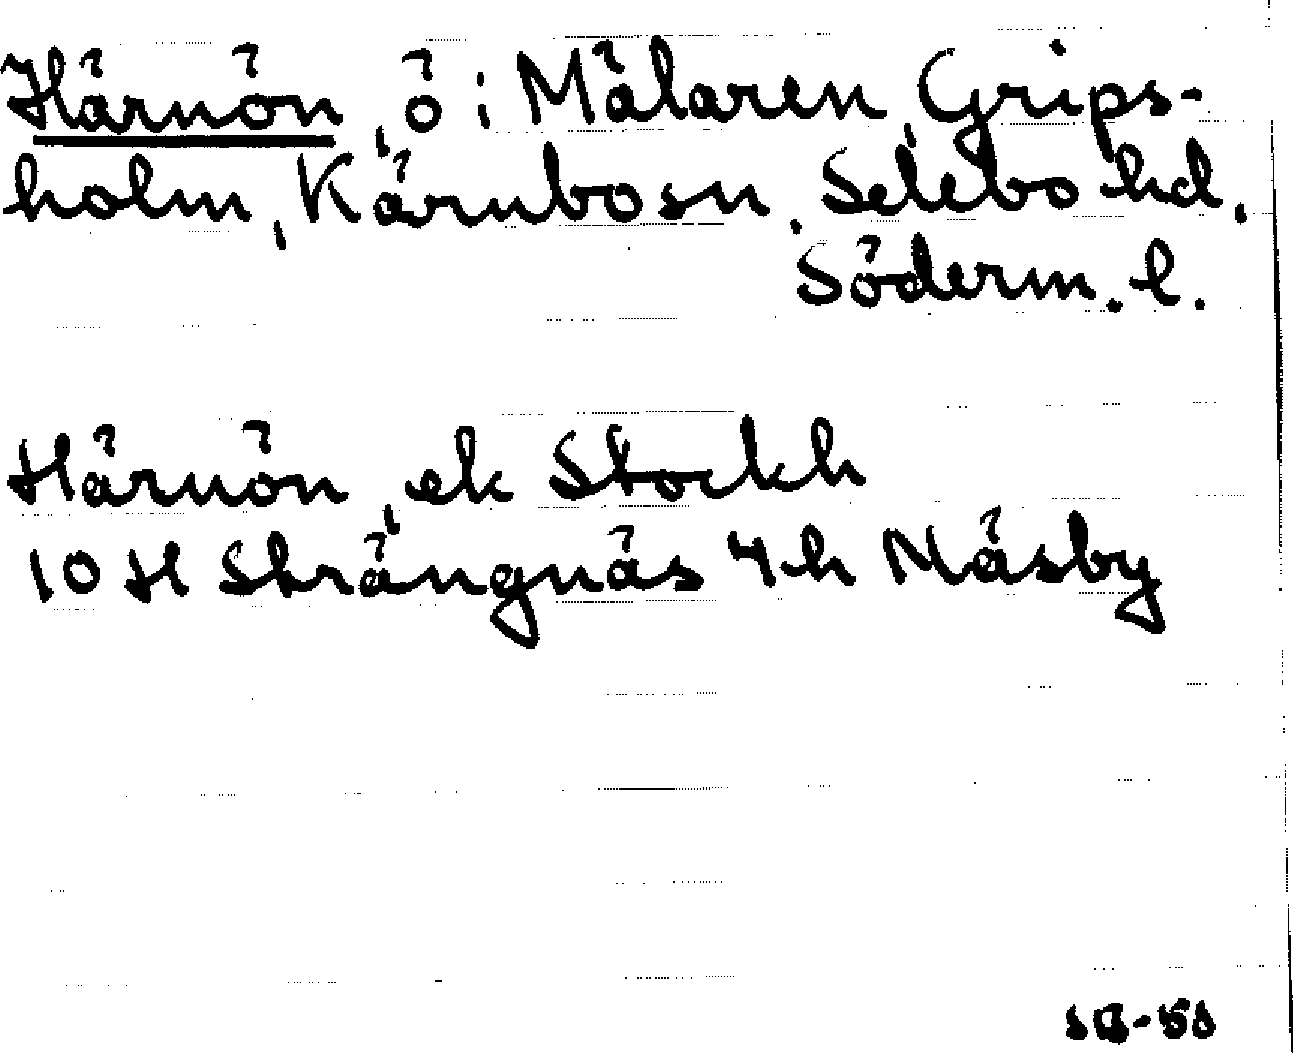 Härnön, ö i Mälaren, Grips-
holm, Kärnbo sn, Selebo hd,
Söderm. l.
Härnön, ek Stockh
10 H Strängnäs 4h Näsby